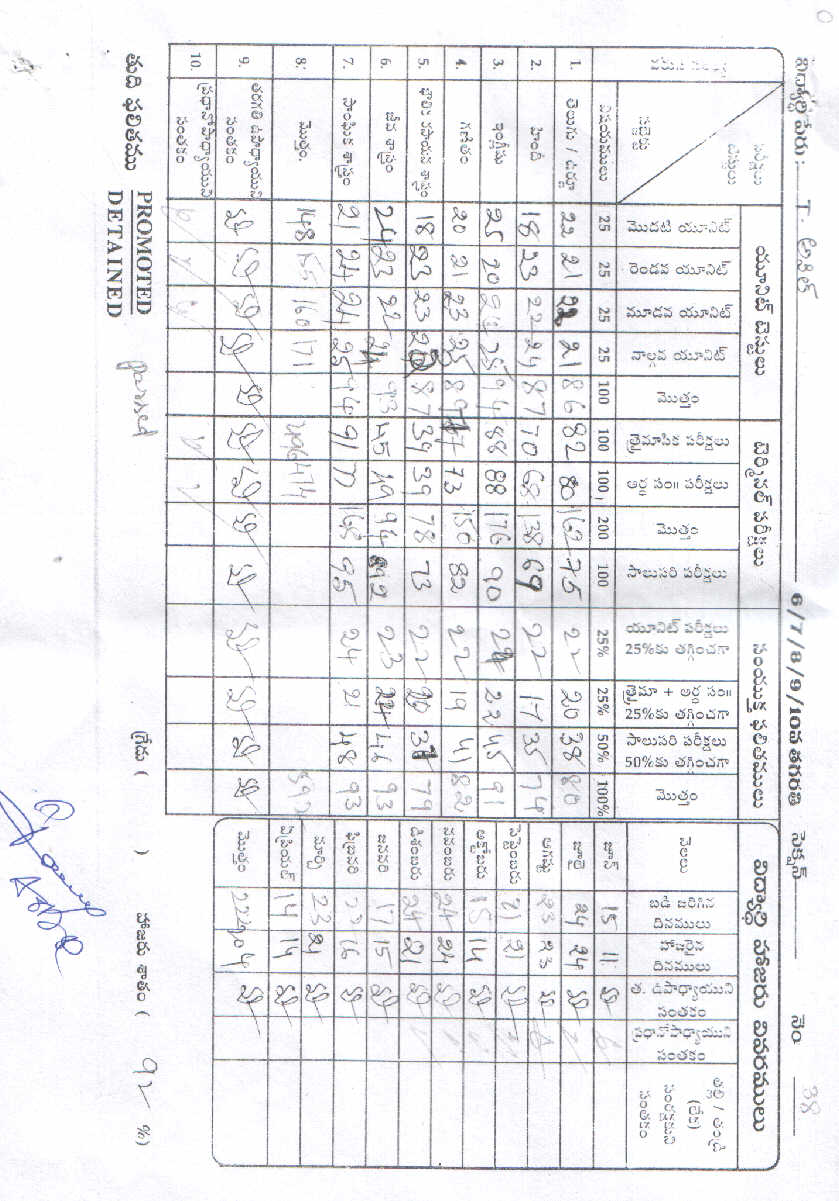 విద్యార్థి పేరు: T. అఖిల్ 6/7/8/9/10వ తరగతి సెక్షన్ నెం 38
పరీక్షలు యూనిట్ టెస్టులు టెర్మినల్ పరీక్షలు సంయుక్త ఫలితములు
విషయములు మొదటి యూనిట్ రెండవ యూనిట్ మూడవ యూనిట్ నాల్గవ యూనిట్ మొత్తం త్రైమాసిక పరీక్షలు అర్ధ సం॥ పరీక్షలు మొత్తం సాలుసరి పరీక్షలు యూనిట్ పరీక్షలు 25%కు తగ్గించగా త్రైమా + అర్ధ సం॥ 25%కు తగ్గించగా సాలుసరి పరీక్షలు 50%కు తగ్గించగా మొత్తం
25 25 25 25 100 100 100 200 100 25% 25% 50% 100%
1. తెలుగు / ఉర్దూ 22 21 22 21 86 82 80 162 75 22 20 38 80
2. హిందీ 18 23 22 24 87 70 68 138 69 22 17 35 74
3. ఇంగ్లీషు 25 20 25 94 88 88 176 90 24 22 45 91
4. గణితం 20 21 23 25 89 77 73 150 82 22 19 41 82
5. భౌతిక రసాయన శాస్త్రం 18 23 23 87 39 39 78 73 22 20 37 79
6. జీవ శాస్త్రం 24 23 22 24 93 45 49 94 92 23 24 46 93
7. సాంఘిక శాస్త్రం 21 24 24 25 94 91 77 168 95 24 21 48 93
8. మొత్తం. 148 155 160 171 496 474 592
9. తరగతి ఉపాధ్యాయుని సంతకం
10. ప్రధానోపాధ్యాయుని సంతకం
విద్యార్థి హాజరు వివరములు
నెలలు బడి జరిగిన దినములు హాజరైన దినములు త. ఉపాధ్యాయుని సంతకం ప్రధానోపాధ్యాయుని సంతకం తల్లి / తండ్రి (లేక) సంరక్షకుని సంతకం
జూన్ 15 11
జూలై 24 24
ఆగష్టు 23 23
సెప్టెంబరు 21 21
అక్టోబరు 15 14
నవంబరు 24 24
డిశంబరు 24 21
జనవరి 17 15
ఫిబ్రవరి 22 16
మార్చి 23 21
ఏప్రియల్ 14 14
మొత్తం 222 204
తుది ఫలితము PROMOTED passed గ్రేడు ( ) హాజరు శాతం ( 92 %)
DETAINED